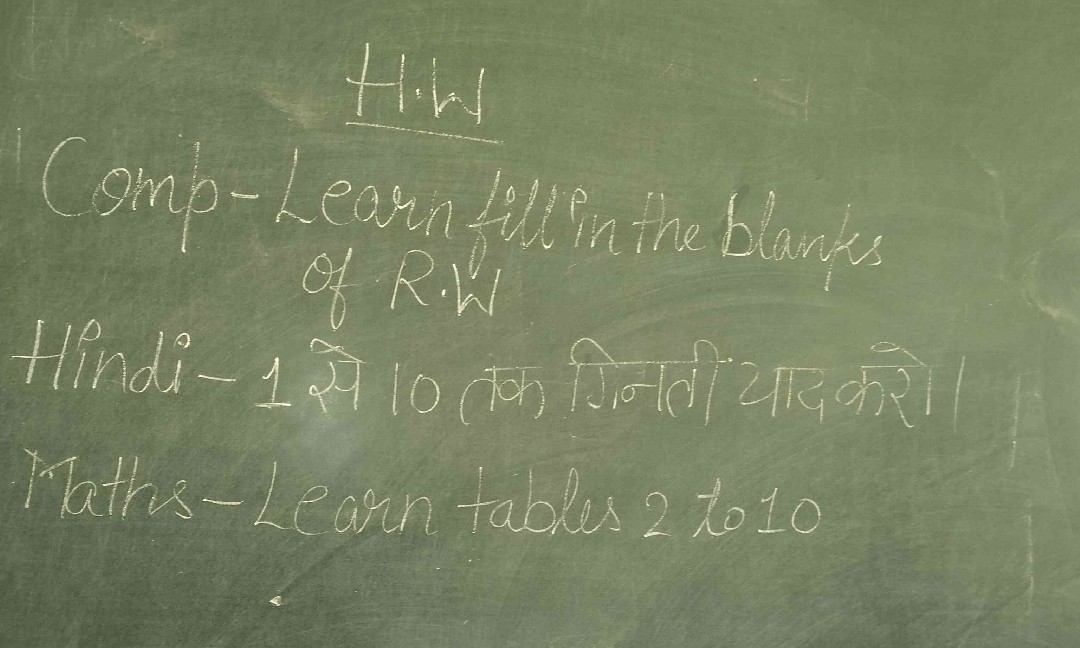 H.W
Comp - Learn fill in the blanks
of R.W
Hindi - 1 से 10 तक गिनती याद करो।
Maths - Learn tables 2 to 10